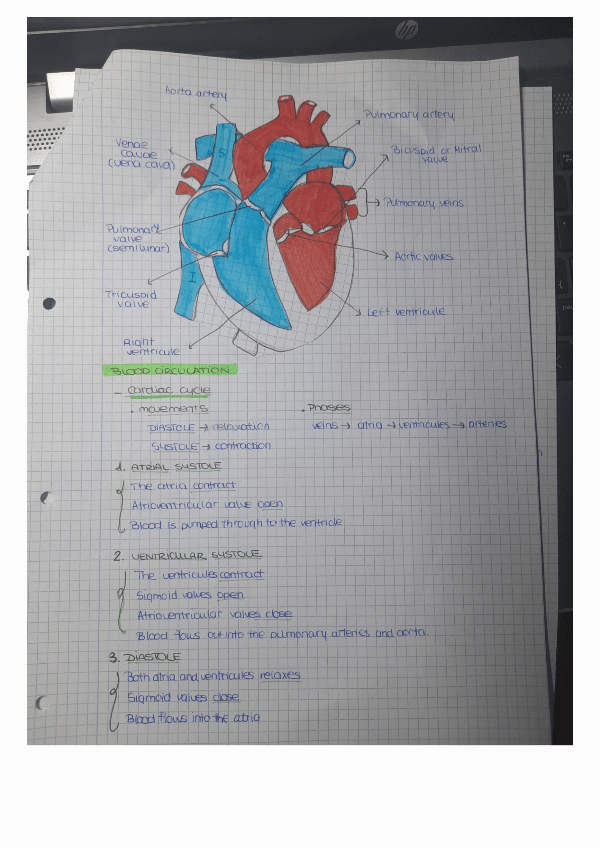 hp
Aorta artery
Pulmonary artery
Venae
cavae
(vena cava)
S
Bicuspid or Mitral
valve
Pulmonary veins
Pulmonary
valve
(semilunar)
Aortic valves
I
Tricuspid
valve
Left ventricule
Right
ventricule
BLOOD CIRCULATION
– Cardiac cycle
. movements
. Phases
DIASTOLE → relaxation
veins → atria → ventricules → arteries
SYSTOLE → contraction
1. ATRIAL SYSTOLE
The atria contract
Atrioventricular valve open
Blood is pumped through to the ventricle
2. VENTRICULAR SYSTOLE
The ventricules contract
Sigmoid valves open
Atrioventricular valves close
Blood flows out into the pulmonary arteries and aorta.
3. DIASTOLE
Both atria and ventricules relaxes
Sigmoid valves close
Blood flows into the atria